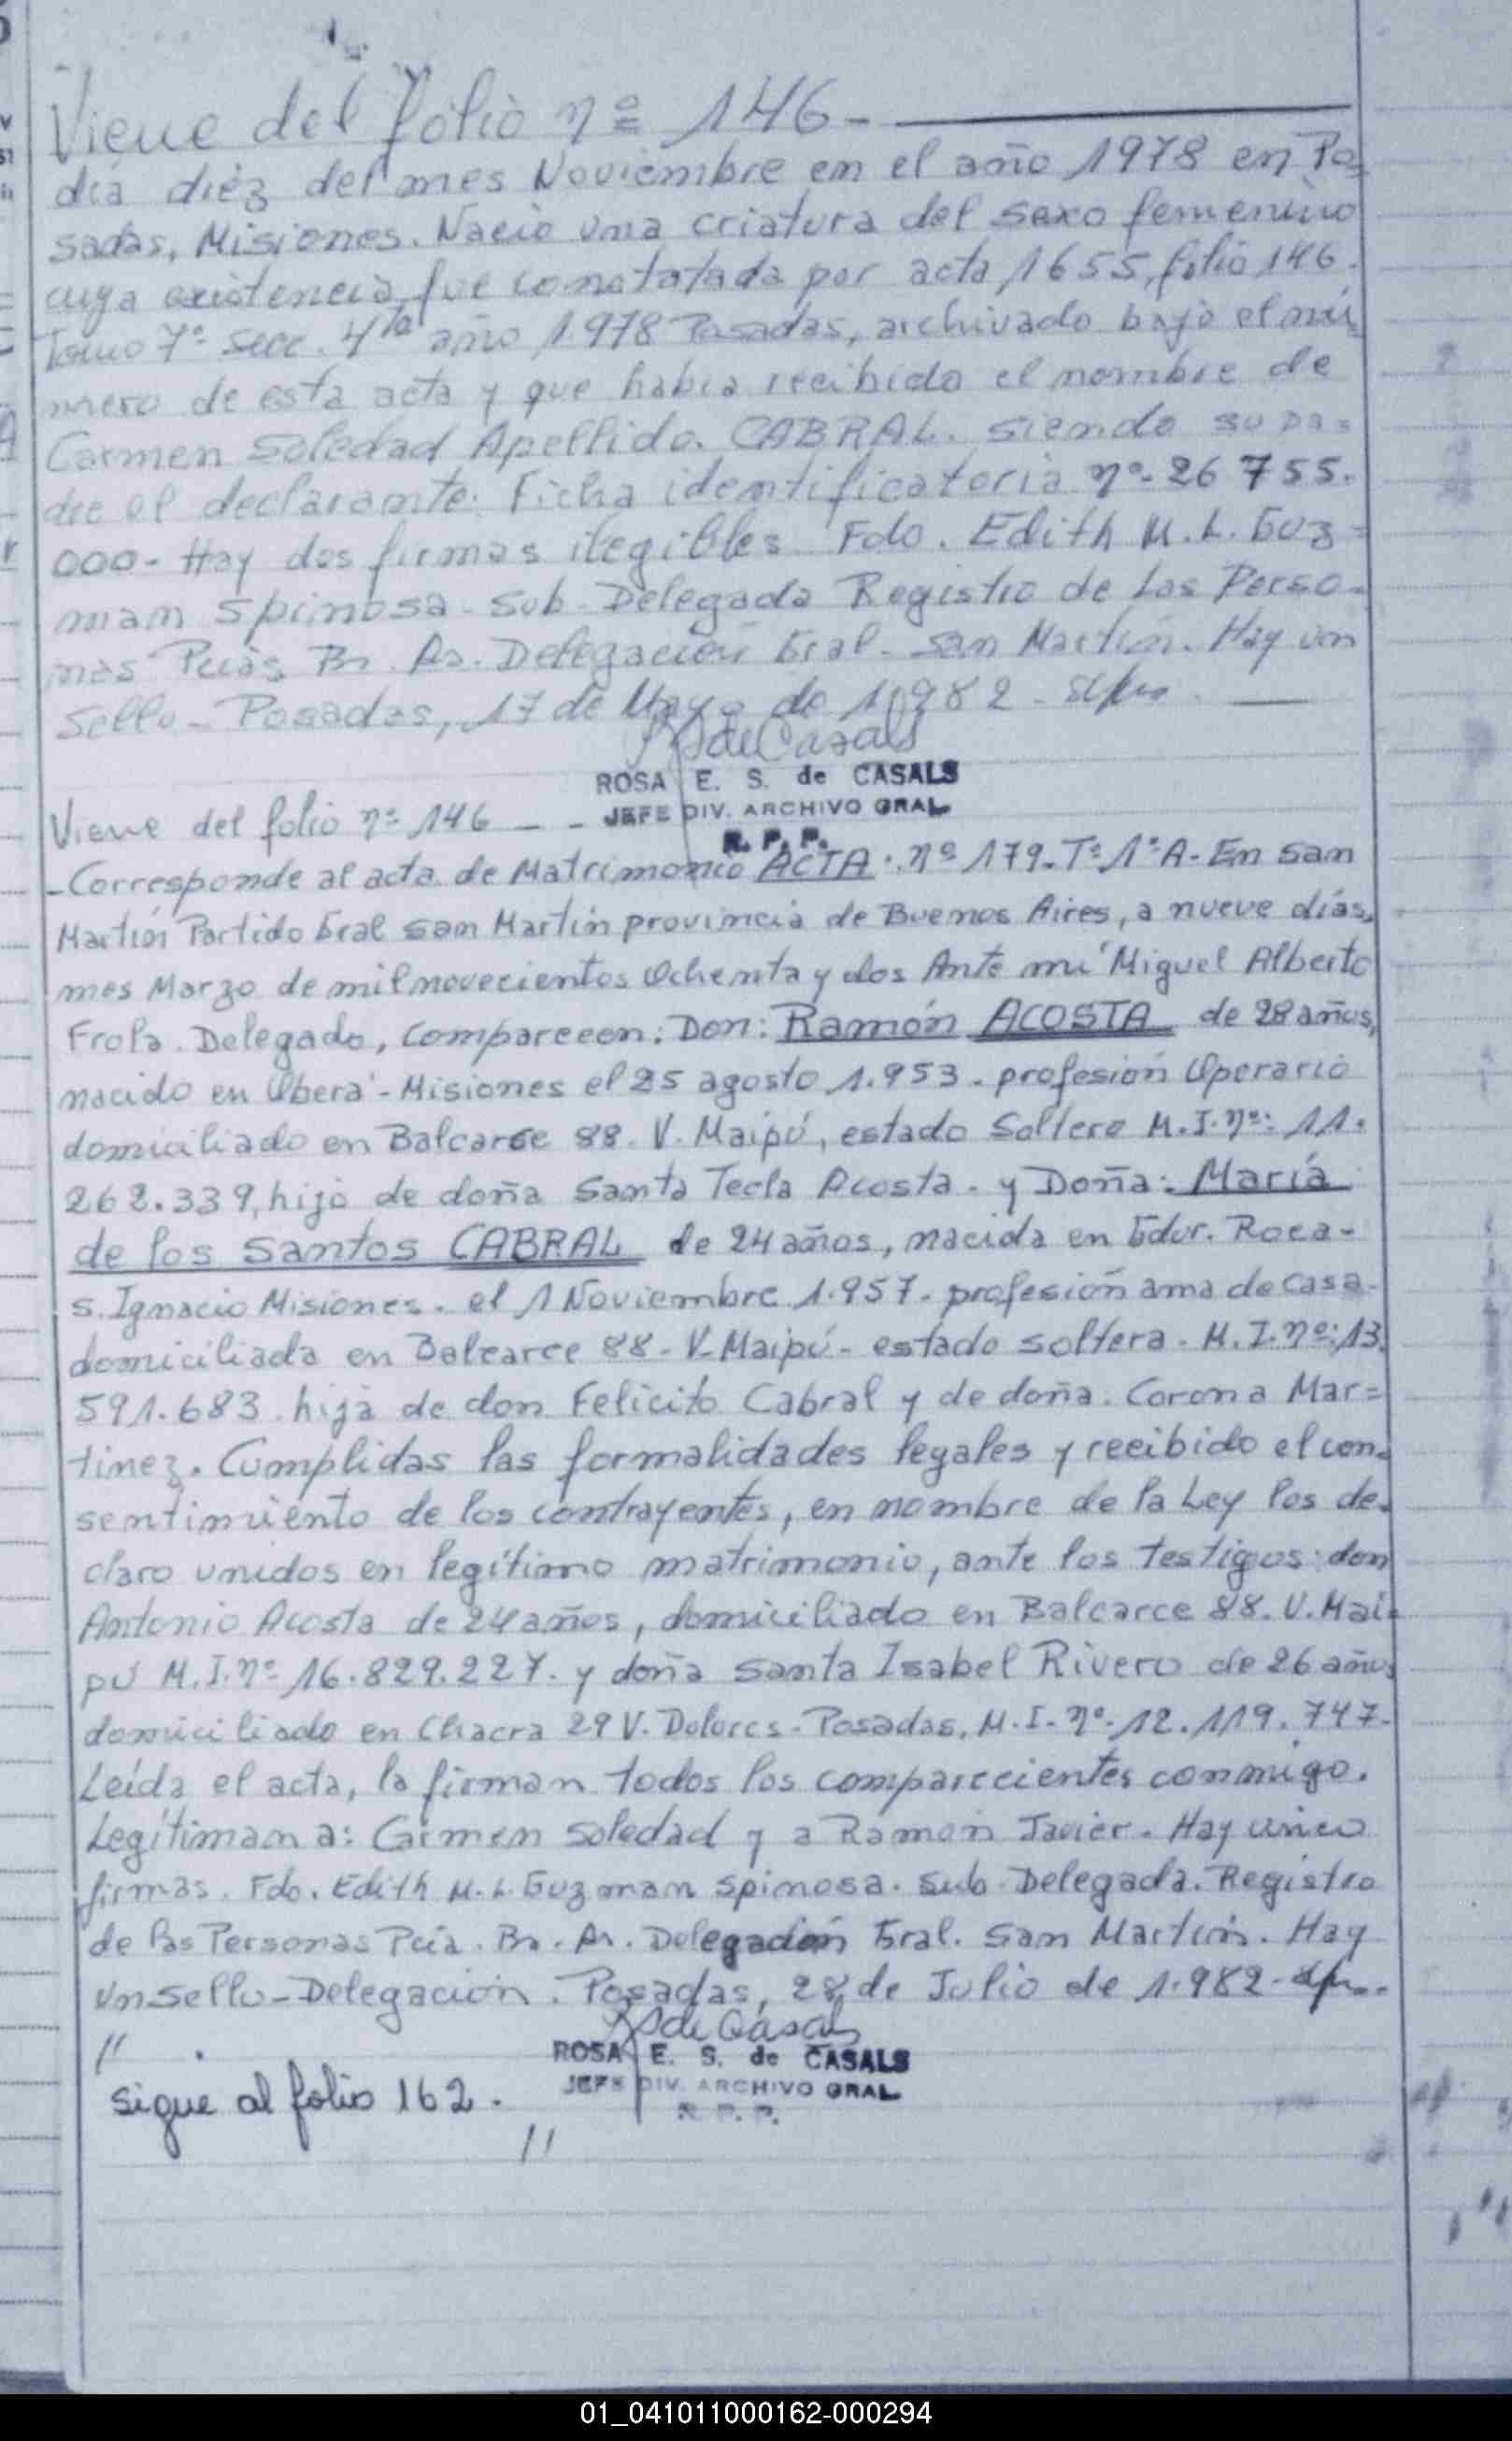 Viene del folio nº 146-
día diéz del mes Noviembre en el año 1978 en Po=
sadas, Misiones. Nació una criatura del sexo femenino
cuya existencia fue constatada por acta 1655, folio 146.
Tomo 7º secc. 4ta año 1.978 Posadas, archivado bajo el nú=
mero de esta acta y que habia recibido el nombre de
Carmen Soledad Apellido. CABRAL. siendo su pa=
dre el declarante. Ficha identificatoria nº-26 755.
000- Hay dos firmas ilegibles Fdo. Edith M. L. Guz=
man Spinosa- Sub-Delegada Registro de Las Perso-
nas Pcias Bs. As. Delegación Gral- San Martín. Hay un
Sello- Posadas, 17 de Mayo de 1982-
RSdeCasals
ROSA E. S. de CASALS
JEFE DIV. ARCHIVO GRAL
R. P. P.
Viene del folio nº 146 - -
-Corresponde al acta de Matrimonio ACTA. nº 179-Tº1ºA-En San
Martín Partido Gral San Martín provincia de Buenos Aires, a nueve días,
mes Marzo de mil novecientos Ochenta y dos Ante mí Miguel Alberto
Frola. Delegado, Comparecen: Don: Ramón ACOSTA de 28 años,
nacido en Oberá-Misiones el 25 agosto 1.953-profesión Operario
domiciliado en Balcarce 88. V. Maipú, estado Soltero M.I.nº: 11.
262.339, hijo de doña Santa Tecla Acosta-y Doña: María
de los Santos CABRAL de 24 años, nacida en Gdor. Roca-
S. Ignacio Misiones. el 1 Noviembre 1.957. profesión ama de casa-
domiciliada en Balcarce 88-V-Maipú-estado soltera-M.I.nº:13.
591.683 hija de don Felicito Cabral y de doña. Corona Mar=
tinez. Cumplidas las formalidades legales y recibido el con-
sentimiento de los contrayentes, en nombre de la Ley los de-
claro unidos en legítimo matrimonio, ante los testigos: don
Antonio Acosta de 24 años, domiciliado en Balcarce 88. V. Mai-
pú M.I.nº 16.829.227. y doña Santa Isabel Rivero de 26 años
domiciliado en Chacra 29 V. Dolores-Posadas, M.I-nº-12.119.747-
Leída el acta, la firman todos los comparecientes conmigo.
Legitiman a: Carmen Soledad y a Ramón Javier. Hay cinco
firmas. Fdo. Edith M. L. Guzman Spinosa. Sub-Delegada. Registro
de las Personas Pcia. Bs. As. Delegación Gral. San Martín. Hay
un Sello-Delegación. Posadas, 28 de Julio de 1.982-
RSdeCasals
ROSA E. S. de CASALS
JEFE DIV. ARCHIVO GRAL
R. P. P.
//
sigue al folio 162.
//
01_041011000162-000294